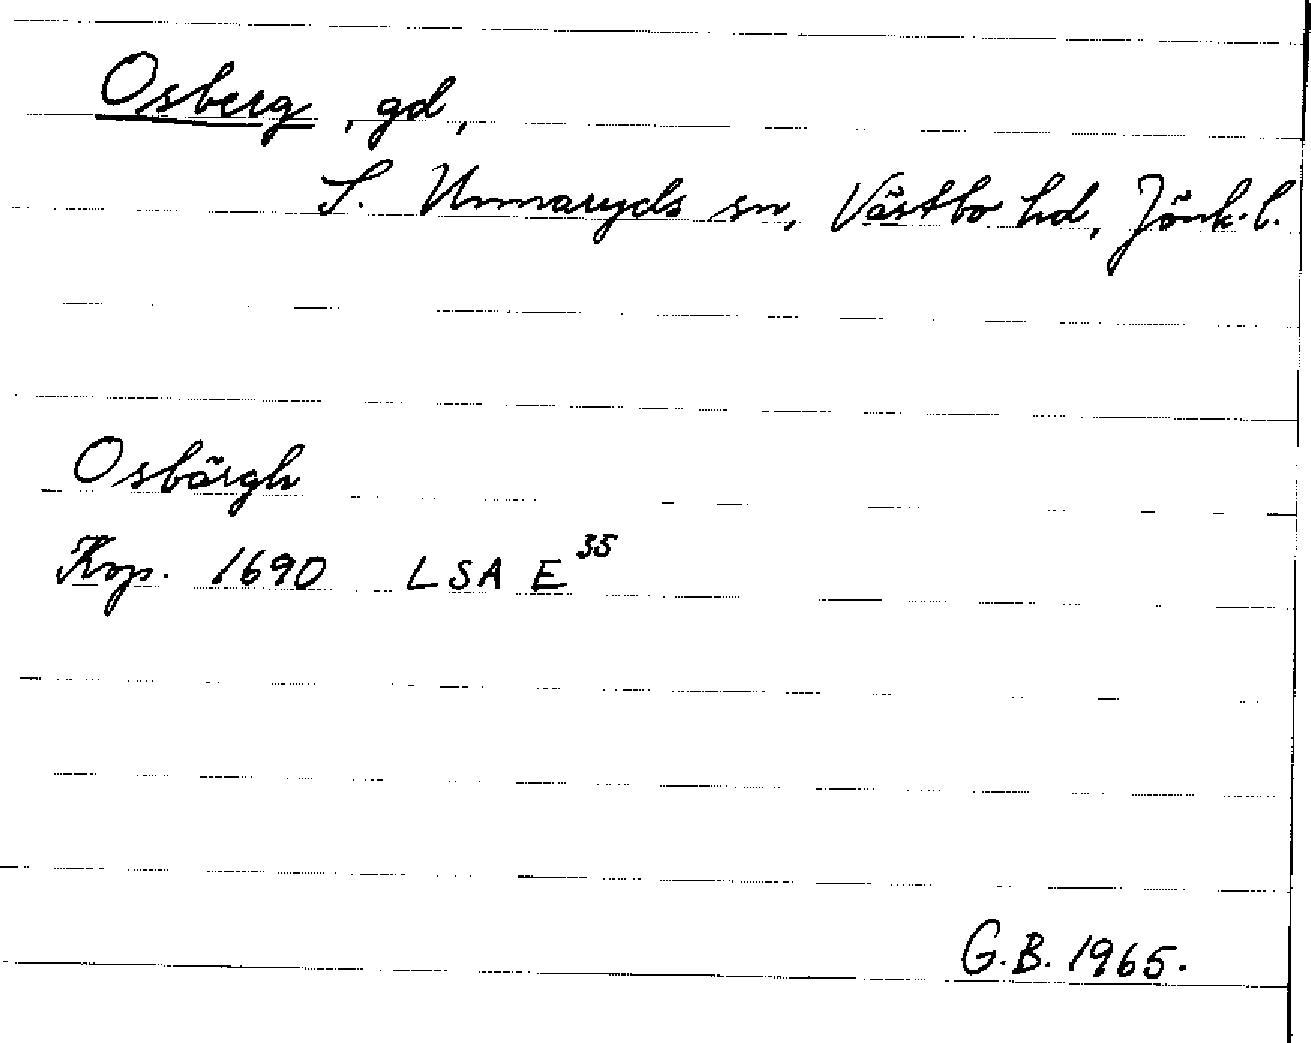 Osberg, gd,
S. Unnaryds sn, Västbo hd, Jönk. l.
Osbärgh
Kop. 1690 LSA E³⁵
G.B. 1965.